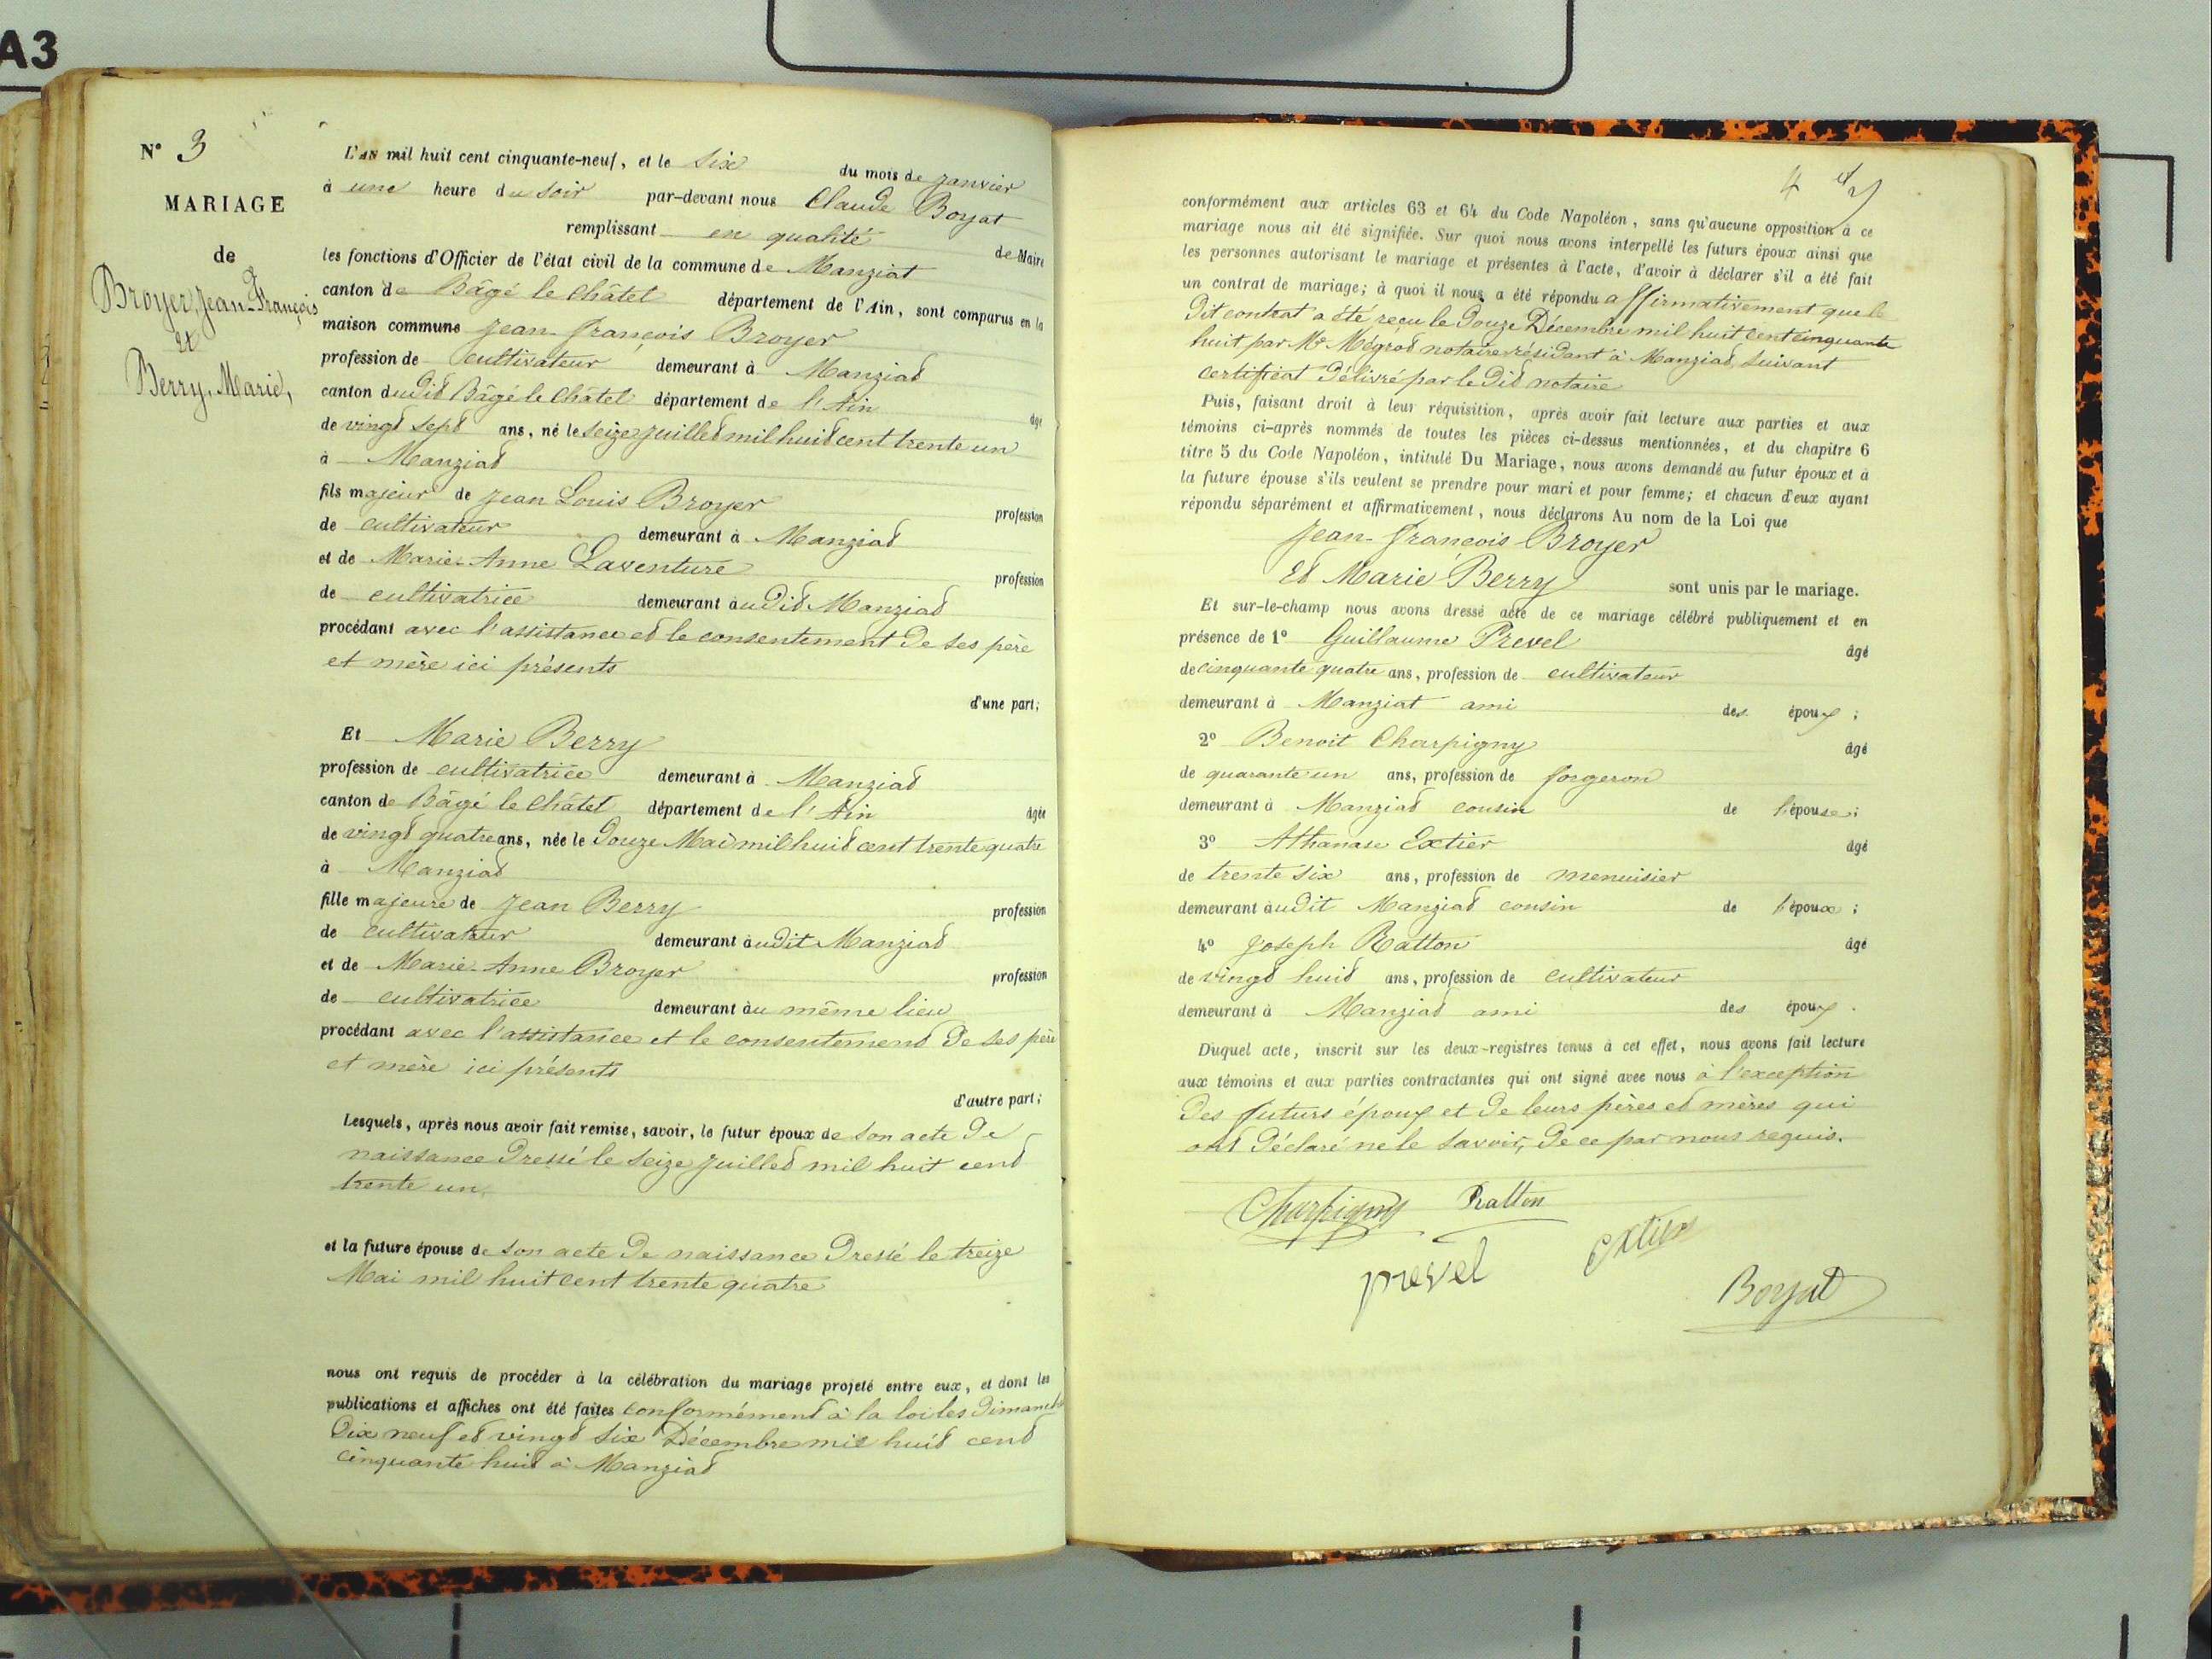 A3
N° 3
MARIAGE
de
Broyer, Jean-François
et
Berry, Marie,
L'AN mil huit cent cinquante-neuf, et le six du mois de janvier
à une heure du soir par-devant nous Claude Boyat
remplissant en qualité de Maire
les fonctions d'Officier de l'état civil de la commune de Manziat
canton de Bâgé le Châtel département de l'Ain, sont comparus en la
maison commune Jean-françois Broyer
profession de cultivateur demeurant à Manziad
canton dudid Bâgé le Châtel département de l'Ain âgé
de vingd sepd ans, né le seize juilled mil huid cent trente un
à Manziad
fils majeur de Jean Louis Broyer profession
de cultivateur demeurant à Manziad
et de Marie-Anne Laventure profession
de cultivatrice demeurant audid Manziad
procédant avec l'assistance ed le consentement de ses père
et mère ici présents
d'une part;
Et Marie Berry
profession de cultivatrice demeurant à Manziad
canton de Bâgé le Châtel département de l'Ain âgée
de vingd quatre ans, née le douze Mai mil huid cent trente quatre
à Manziad
fille majeure de Jean Berry profession
de cultivateur demeurant audit Manziad
et de Marie-Anne Broyer profession
de cultivatrice demeurant au même lieu
procédant avec l'assistance et le consentemend de ses père
et mère ici présents
d'autre part;
Lesquels, après nous avoir fait remise, savoir, le futur époux de son acte de
naissance dressé le seize juilled mil huit cend
trente un
et la future épouse de son acte de naissance dressé le treize
Mai mil huit cent trente quatre
nous ont requis de procéder à la célébration du mariage projeté entre eux, et dont les
publications et affiches ont été faites conformémend à la loi les dimanches
dix neuf ed vingd six Décembre mil huid cend
cinquante huid à Manziad
4
conformément aux articles 63 et 64 du Code Napoléon, sans qu'aucune opposition à ce
mariage nous ait été signifiée. Sur quoi nous avons interpellé les futurs époux ainsi que
les personnes autorisant le mariage et présentes à l'acte, d'avoir à déclarer s'il a été fait
un contrat de mariage; à quoi il nous a été répondu affirmativement que le
dit contrat a été reçu le douze Décembre mil huit cent cinquante
huit par Me Mégrod notaire résidant à Manziad, suivant
certificat délivré par le did notaire
Puis, faisant droit à leur réquisition, après avoir fait lecture aux parties et aux
témoins ci-après nommés de toutes les pièces ci-dessus mentionnées, et du chapitre 6
titre 5 du Code Napoléon, intitulé Du Mariage, nous avons demandé au futur époux et à
la future épouse s'ils veulent se prendre pour mari et pour femme; et chacun d'eux ayant
répondu séparément et affirmativement, nous déclarons Au nom de la Loi que
Jean-françois Broyer
Ed Marie Berry sont unis par le mariage.
Et sur-le-champ nous avons dressé acte de ce mariage célébré publiquement et en
présence de 1° Guillaume Prevel âgé
de cinquante quatre ans, profession de cultivateur
demeurant à Manziat ami des époux;
2° Benoit Charpigny âgé
de quarante un ans, profession de forgeron
demeurant à Manziad cousin de l'épouse;
3° Athanase Extier âgé
de trente six ans, profession de menuisier
demeurant audit Manziad cousin de l'époux;
4° Joseph Ratton âgé
de vingd huid ans, profession de cultivateur
demeurant à Manziad ami des époux.
Duquel acte, inscrit sur les deux registres tenus à cet effet, nous avons fait lecture
aux témoins et aux parties contractantes qui ont signé avec nous à l'exception
des futurs époux et de leurs pères ed mères qui
ond déclaré ne le savoir, de ce par nous requis.
Charpigny Ratton
Extier
prevel
Boyat